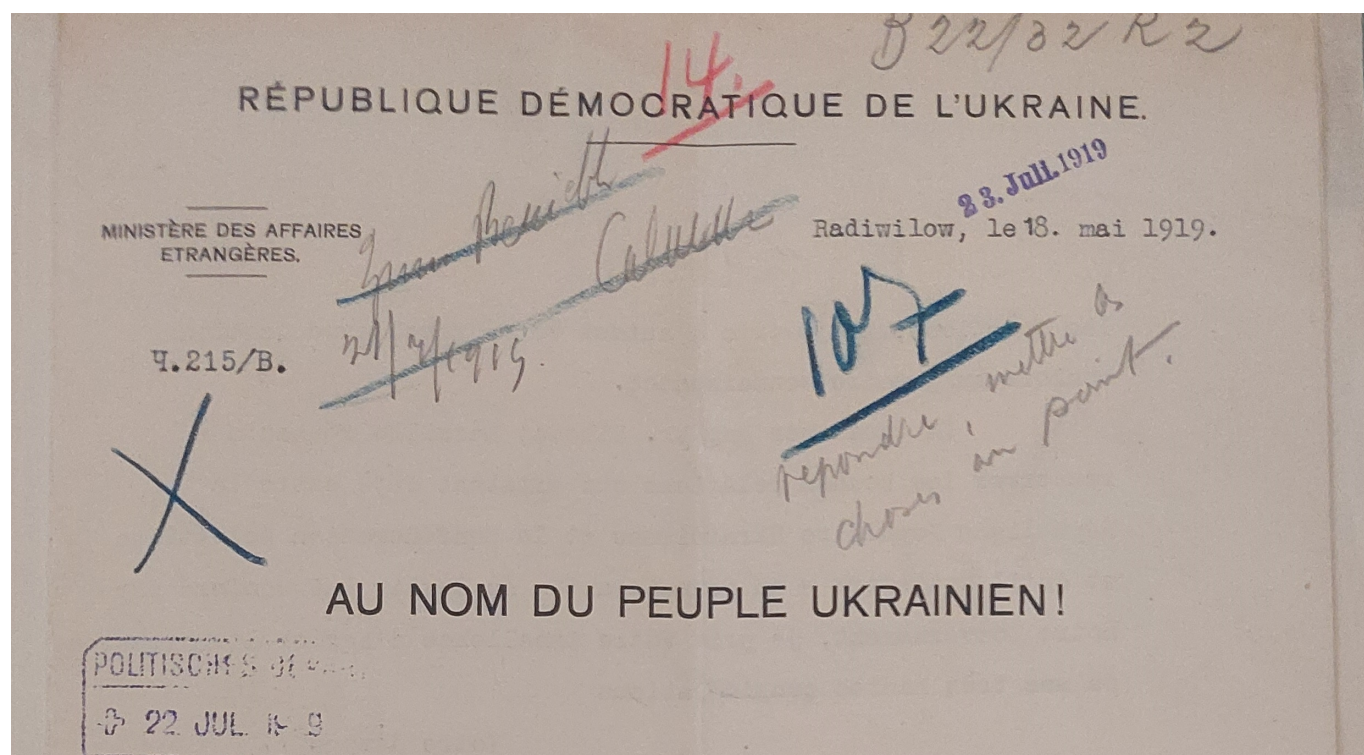 B 22/32 R 2
14.
RÉPUBLIQUE DÉMOCRATIQUE DE L'UKRAINE.
23. Juli 1919
MINISTÈRE DES AFFAIRES
ETRANGÈRES.
Radiwilow, le 18. mai 1919.
Ч.215/B.
107
répondre, mettre les
choses au point.
AU NOM DU PEUPLE UKRAINIEN!
POLITISCHES
22 JUL.